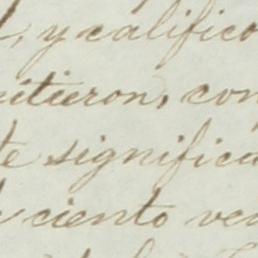 , y califico
itieron, con
te significa
ciento vec